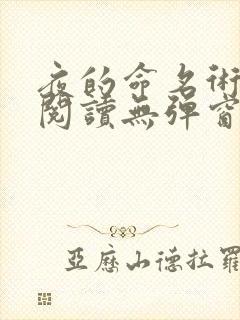 夜的命名術
閱讀無彈窗
亞歷山德拉羅